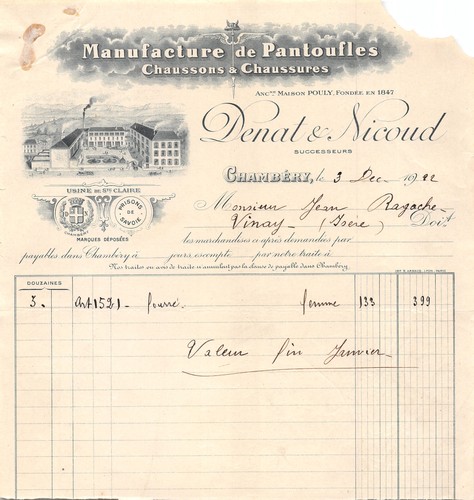 Manufacture de Pantoufles
Chaussons & Chaussures
Ancne Maison POULY, Fondée en 1847
Denat & Nicoud
SUCCESSEURS
CHAMBÉRY, le 3 Dec 1922
USINE DE STE CLAIRE
D N
CHAMBÉRY
PRISONS DE SAVOIE
MARQUES DÉPOSÉES
Monsieur Jean Ragache
Vinay - (Isère) Doit
les marchandises ci après demandées par
payables dans Chambéry à jours escompte par notre traite à
Nos traites en cas de retour n'annulent pas la clause de payable dans Chambéry.
DOUZAINES
3. Art 1521 - fourré femme 133 399
Valeur fin Janvier